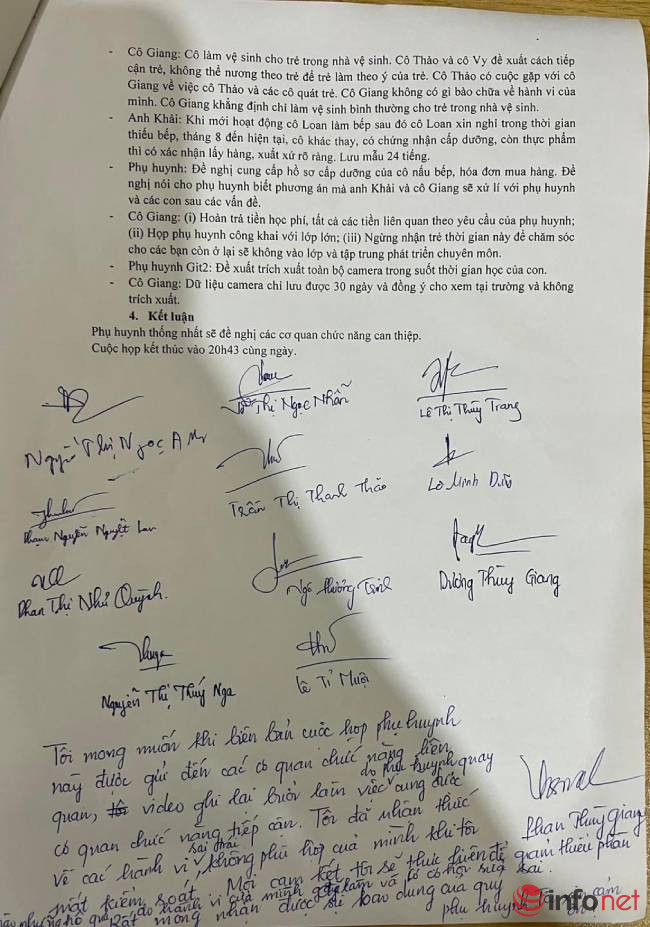 - Cô Giang: Cô làm vệ sinh cho trẻ trong nhà vệ sinh. Cô Thảo và cô Vy đề xuất cách tiếp
cận trẻ, không thể nương theo trẻ để trẻ làm theo ý của trẻ. Cô Thảo có cuộc gặp với cô
Giang về việc cô Thảo và các cô quát trẻ. Cô Giang không có gì bào chữa về hành vi của
mình. Cô Giang khẳng định chỉ làm vệ sinh bình thường cho trẻ trong nhà vệ sinh.
- Anh Khải: Khi mới hoạt động cô Loan làm bếp sau đó cô Loan xin nghỉ trong thời gian
thiếu bếp, tháng 8 đến hiện tại, cô khác thay, có chứng nhận cấp dưỡng, còn thực phẩm
thì có xác nhận lấy hàng, xuất xứ rõ ràng. Lưu mẫu 24 tiếng.
- Phụ huynh: Đề nghị cung cấp hồ sơ cấp dưỡng của cô nấu bếp, hóa đơn mua hàng. Đề
nghị nói cho phụ huynh biết phương án mà anh Khải và cô Giang sẽ xử lí với phụ huynh
và các con sau các vấn đề.
- Cô Giang: (i) Hoàn trả tiền học phí, tất cả các tiền liên quan theo yêu cầu của phụ huynh;
(ii) Họp phụ huynh công khai với lớp lớn; (iii) Ngừng nhận trẻ thời gian này để chăm sóc
cho các bạn còn ở lại sẽ không vào lớp và tập trung phát triển chuyên môn.
- Phụ huynh Git2: Đề xuất trích xuất toàn bộ camera trong suốt thời gian học của con.
- Cô Giang: Dữ liệu camera chỉ lưu được 30 ngày và đồng ý cho xem tại trường và không
trích xuất.
4. Kết luận
Phụ huynh thống nhất sẽ đề nghị các cơ quan chức năng can thiệp.
Cuộc họp kết thúc vào 20h43 cùng ngày.
Thị Ngọc Nhân
Lê Thị Thùy Trang
Nguyễn Thị Ngọc
Trần Thị Thanh Thảo
Lê Minh
Phạm Nguyễn Nguyệt Lan
Phan Thị Như Quỳnh.
Ngô Hương
Dương Thùy Giang
Nguyễn Thị Thúy Nga
Lê Muội
Tôi mong muốn khi biên bản cuộc họp phụ huynh
này được gửi đến các cơ quan chức năng liên
do phụ huynh quay
quan, video ghi lại buổi làm việc cũng được
cơ quan chức năng tiếp cận. Tôi đã nhận thức
Phan Thùy Giang
sai trái
về các hành vi, không phù hợp của mình khi tôi
mất kiểm soát. cam kết tôi sẽ thực hiện để giảm thiểu phần
hành vi của mình làm và có cơ hội sửa sai.
mong nhận được sự bao dung của quý
phụ huynh
infonet